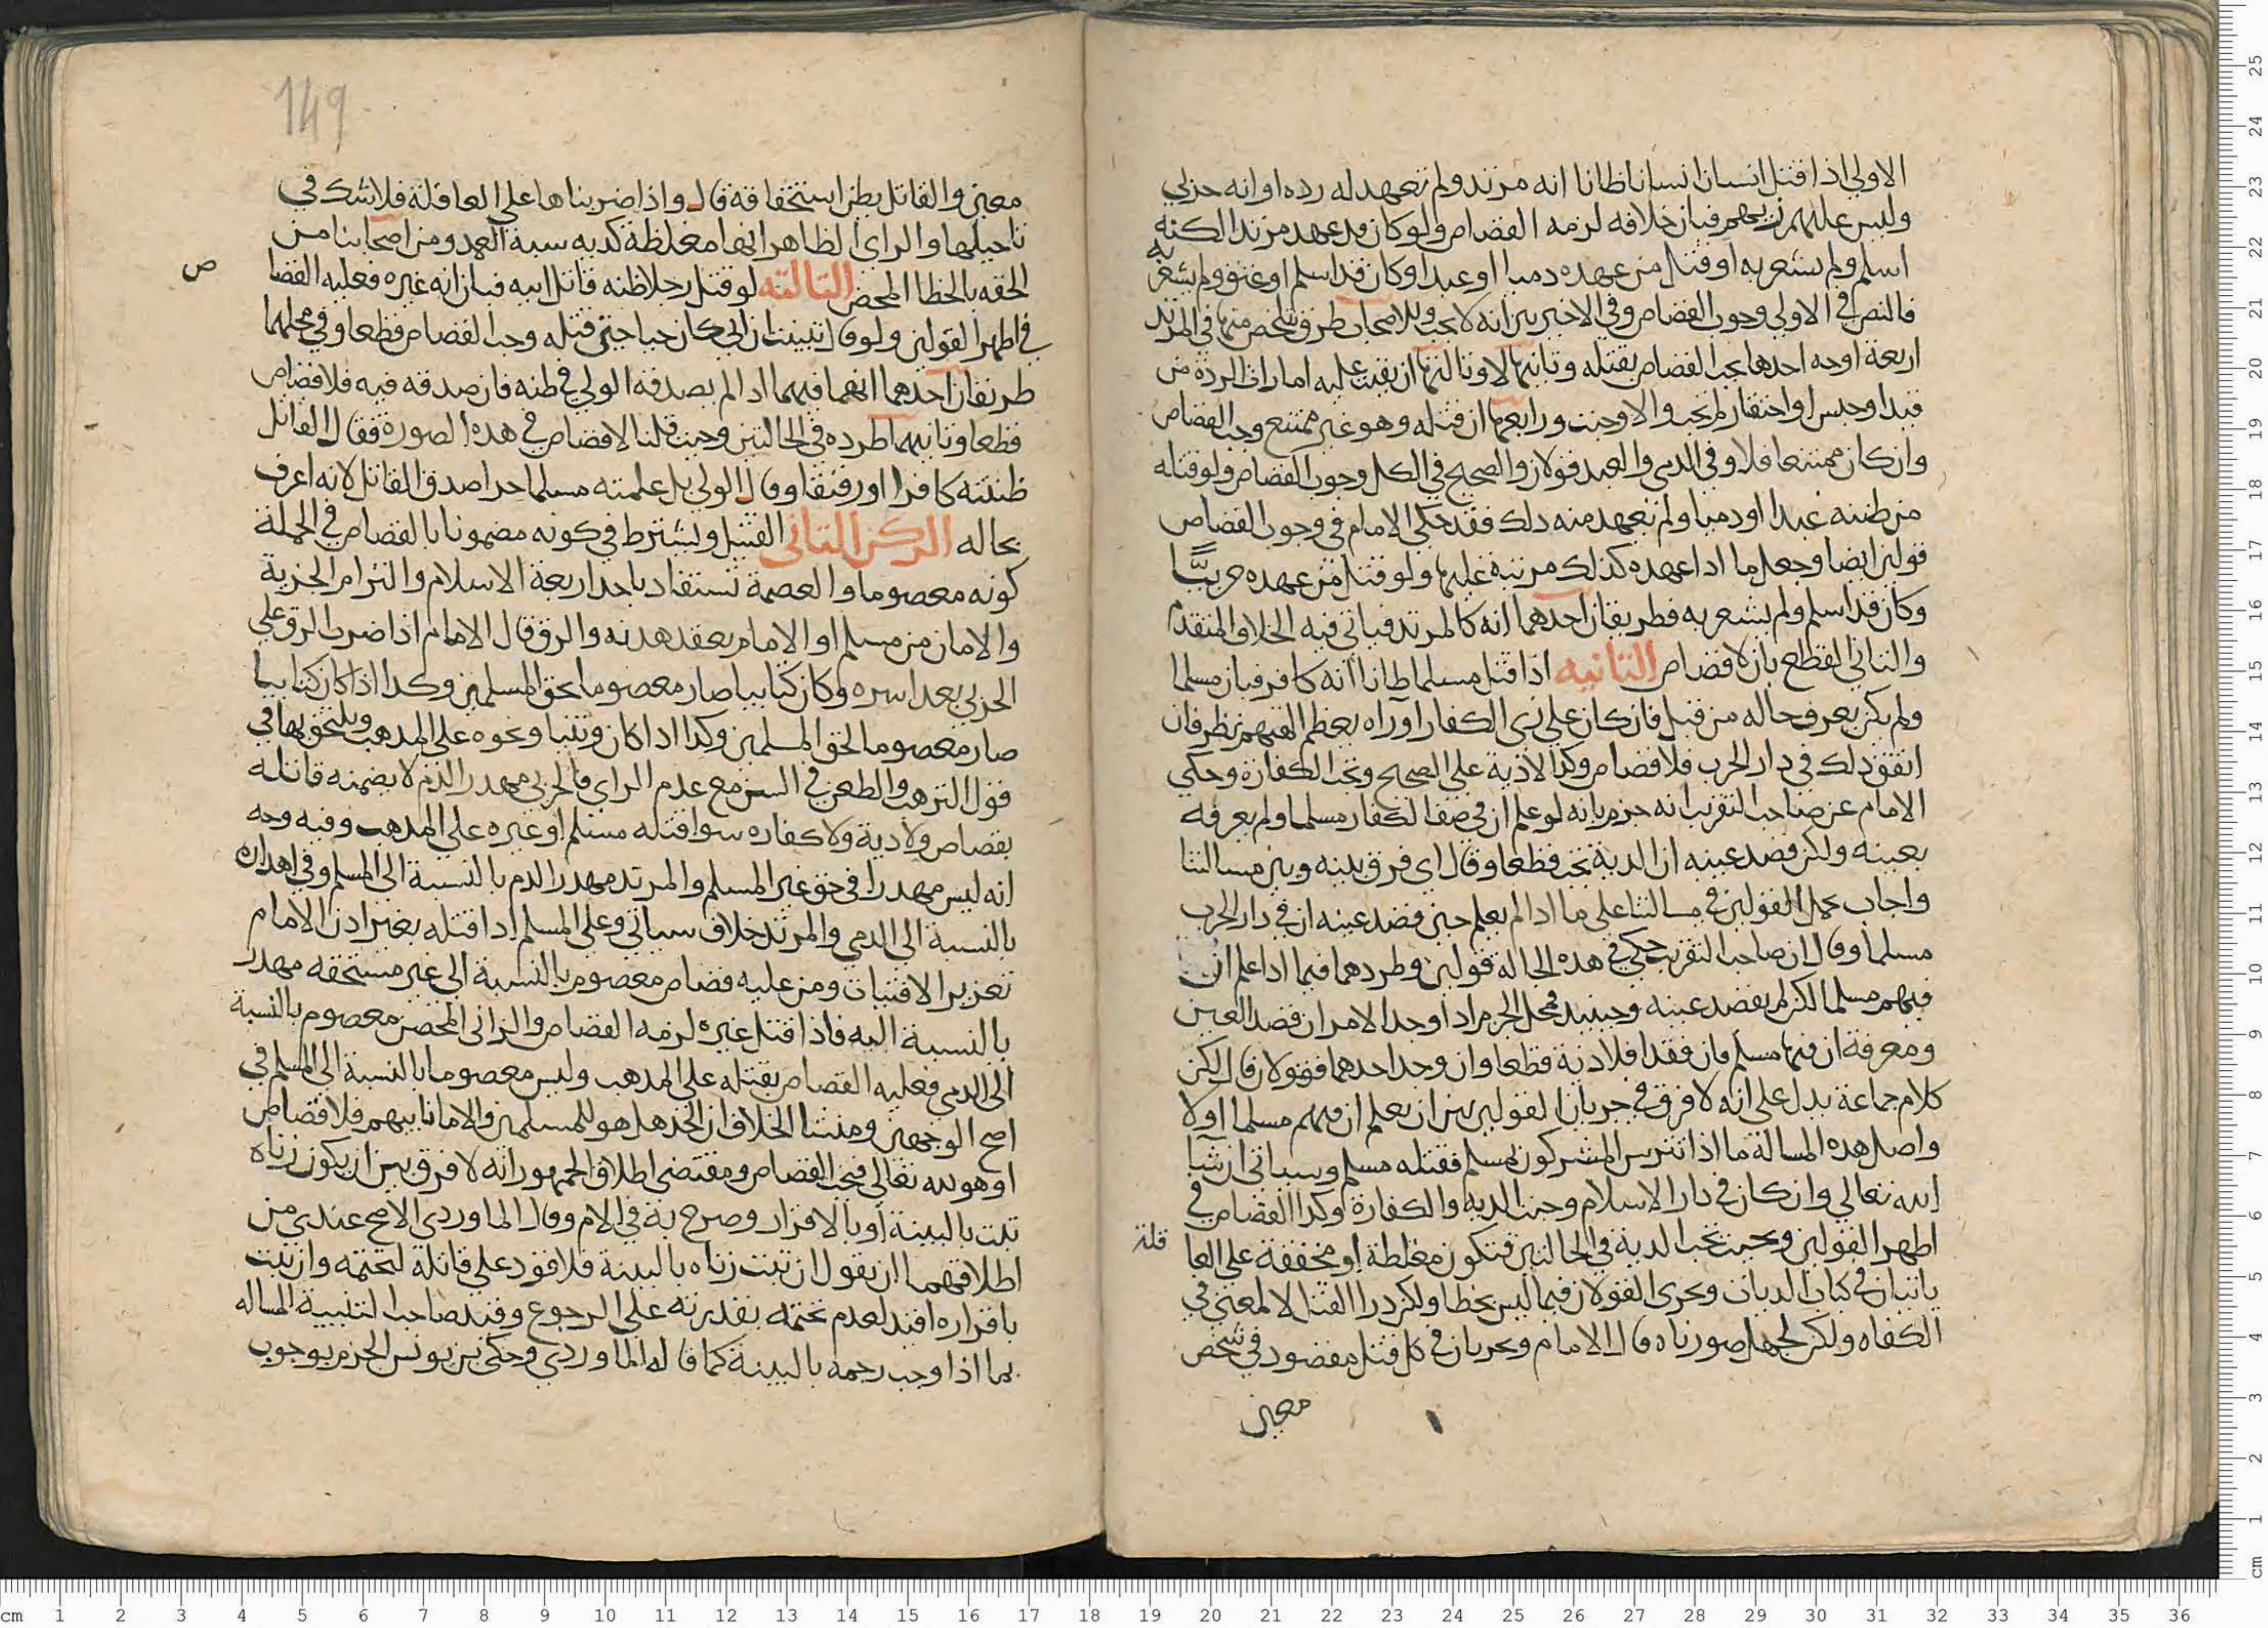 الاولي اذا قتل انسان انسانا ظانا انه مرتد ولم تعهد له رده او انه حربي
وليس عليهم زيهم فبان خلافه لزمه القصاص ولو كان قد عهد مرتدا لكنه
اسلم ولم يشعر به او قتل من عهده دميا او عبدا وكان قد اسلم او عتق ولم يشعر به
فالنص في الاولي وجوب القصاص وفي الاخيرين انه لا يجب وللاصحاب طرق تلخص منها في المرتد
اربعة اوجه احدها يجب القصاص بقتله وثانيها لا وثالثها ان بقيت عليه امارات الردة من
قيد او حبس او احتقار لم تجب والا وجبت ورابعها ان قتله وهو غير ممتنع وجب القصاص
وان كان ممتنعا فلا وفي الدمي والعبد قولان والصحيح في الكل وجوب القصاص ولو قتله
من ظنه عبدا او دميا ولم يعهد منه دلك فقد حكي الامام في وجوب القصاص
قولين ايضا وجعل ما ادا عهده كذلك مرتبة عليها ولو قتل من عهده حربيا
وكان قد اسلم ولم يشعر به فطريقان احدهما انه كالمرتد فياتي فيه الخلاف المتقدم
والثاني القطع بان لا قصاص الثانيه اذا قتل مسلما ظانا انه كافر فبان مسلما
ولم يكن يعرف حاله من قبل فان كان علي زي الكفار او راه يعظم الهتهم نظر فان
اتفق ذلك في دار الحرب فلا قصاص وكذا لا دية علي الصحيح وتجب الكفارة وحكي
الامام عن صاحب التقريب انه جزم بانه لو علم ان في صف الكفار مسلما ولم يعرفه
بعينه ولكن قصد عينه ان الدية تجب قطعا وقال اي فرق بينه وبين مسالتنا
واجاب بحمل القولين في مسالتنا علي ما ادا لم يعلم حين قصد عينه ان في دار الحرب
مسلما وقال ان صاحب التقريب حكي في هذه الحالة قولين وطردهما فيما ادا علم ان
فيهم مسلما لكن لم يقصد عينه وحينيد فمحل الجزم اذا وجد الامران قصد العين
ومعرفة ان فيها مسلم فان فقدا فلا دية قطعا وان وجد احدهما فقولان قال لكن
كلام جماعة يدل علي انه لا فرق في جريان القولين بين ان يعلم ان فيهم مسلما او لا
واصل هذه المسالة ما اذا تترس المشركون بمسلم فقتله مسلم وسياتي ان شا
الله تعالي وان كان في دار الاسلام وجبت الديه والكفارة وكدا القصاص في
اظهر القولين وحيث تجب الدية في الحالتين فتكون مغلظة او مخففة علي العا
قلة
ياتيان في كتاب الديات ويجري القولان فيما ليس بخطا ولكن درا القتل لا لمعني في
الكفاه ولكن لجهل صورناه قال الامام ويجريان في كل قتل مقصود في شخص
معين
149
معين والقاتل يظن استحقاقه قال واذا ضربناها علي العاقلة فلا شك في
تاجيلها والراي الظاهر انها مغلظة كديه شبه العمد ومن اصحابنا من
الحقه بالخطا المحض الثالثه لو قتل رجلا ظنه قاتل ابيه فبان انه غيره فعليه القصا
ص
في اظهر القولين ولو قال تبينت ان ابي كان حيا حين قتله وجب القصاص قطعا وفي محلهما
طريقان احدهما انهما فيهما ادا لم يصدقه الولي في ظنه فان صدقه فيه فلا قصاص
قطعا وثانيهما طرده في الحالتين وحيث قلنا لا قصاص في هده الصورة فقال القاتل
ظننته كافرا او رقيقا وقال الولي بل علمته مسلما حرا صدق القاتل لانه اعرف
بحاله الركن الثاني القتيل ويشترط في كونه مضمونا بالقصاص في الجملة
كونه معصوما والعصمة تستفاد باحد اربعة الاسلام والتزام الجزية
والامان من مسلم او الامام بعقد هدنه والرق قال الامام اذا ضرب الرق علي
الحربي بعد اسره وكان كتابيا صار معصوما بحق المسلمين وكدا اذا كان كتابيا
صار معصوما لحق المسلمين وكدا ادا كان وثنيا ونحوه علي المدهب ويلتحق بها في
قول الترهب والطعن في السن مع عدم الراي فالحربي مهدر الدم لا يضمنه قاتله
بقصاص ولا دية ولا كفاره سوا قتله مسلم او غيره علي المدهب وفيه وجه
انه ليس مهدرا في حق غير المسلم والمرتد مهدر الدم بالنسبة الي المسلم وفي اهداره
بالنسبة الي الدمي والمرتد خلاف سياتي وعلي المسلم ادا قتله بغير ادن الامام
تعزير الافتيات ومن عليه قصاص معصوم بالنسبة الي غير مستحقه مهدر
بالنسبة اليه فاذا قتل غيره لزمه القصاص والزاني المحصن معصوم بالنسبة
الي الدمي فعليه القصاص بقتله علي المدهب وليس معصوما بالنسبة الي المسلم في
اصح الوجهين ومنشا الخلاف ان الحد هل هو للمسلمين والامام نايبهم فلا قصاص
او هو لله تعالي فيجب القصاص ومقتضي اطلاق الجمهور انه لا فرق بين ان يكون زناه
ثبت بالبينة او بالاقرار وصرح به في الام وقال الماوردي الاصح عندي من
اطلاقهما ان يقول ان ثبت زناه بالبينة فلا قود علي قاتله لتحتمه وان ثبت
باقراره اقيد لعدم تحتمه بقدرته علي الرجوع وقيد صاحب التنبيه المساله
بما اذا وجب رجمه بالبينة كما قاله الماوردي وحكي بن يونس الجزم بوجوب